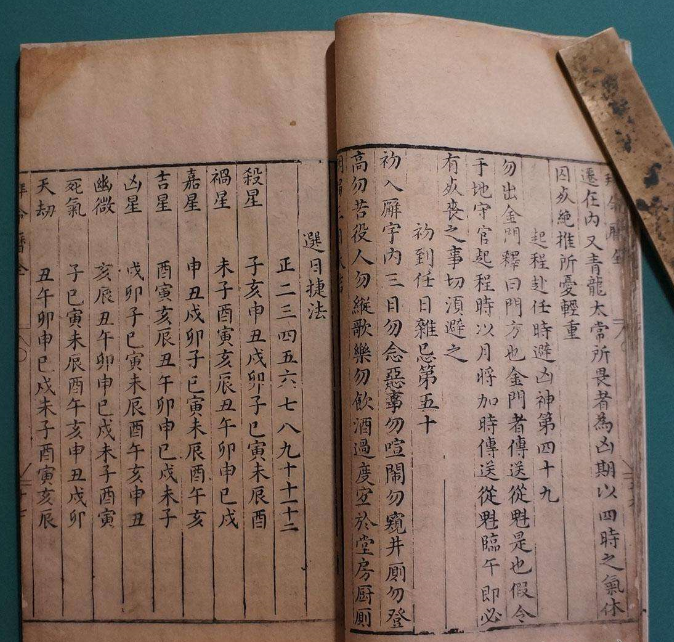 遷在內又青龍太常所畏者為凶期以四時之氣休
囚死絶推所憂輕重
起程赴任時避凶神第四十九
勿出金門釋曰門方也金門者傳送從魁是也假令
于地守官起程時以月將加時傳送從魁臨午即必
有死喪之事切須避之
初到任日雜忌第五十
初入廨宇內三日勿念惡事勿喧鬧勿窺井廁勿登
高勿苦役人勿縱歌樂勿飲酒過度宜於堂房厨廁
選日捷法
正二三四五六七八九十十一十二
殺星 子亥申丑戌卯子巳寅未辰酉
禍星 未子酉寅亥辰丑午卯申巳戌
嘉星 申丑戌卯子巳寅未辰酉午亥
吉星 酉寅亥辰丑午卯申巳戌未子
凶星 戌卯子巳寅未辰酉午亥申丑
幽微 亥辰丑午卯申巳戌未子酉寅
死氣 子巳寅未辰酉午亥申丑戌卯
天劫 丑午卯申巳戌未子酉寅亥辰